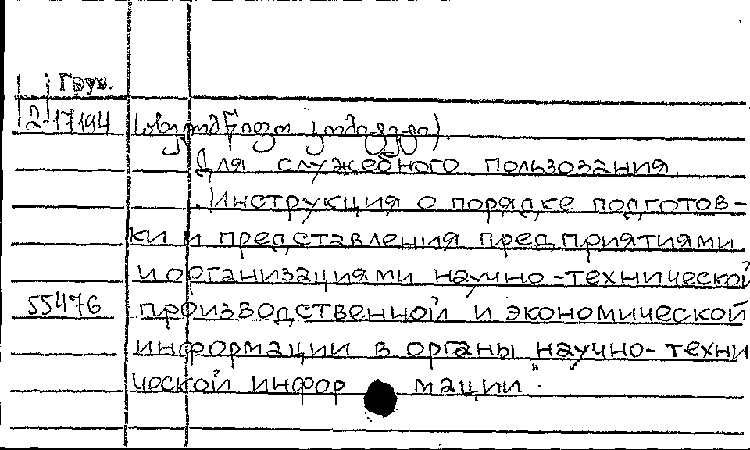 Груз.
2-17194
Для служебного пользования
Инструкция о порядке подготов-
ки и представления предприятиями
и организациями научно-технической
55476 производственной и экономической
информации в органы научно-техни
ческой инфор мации.